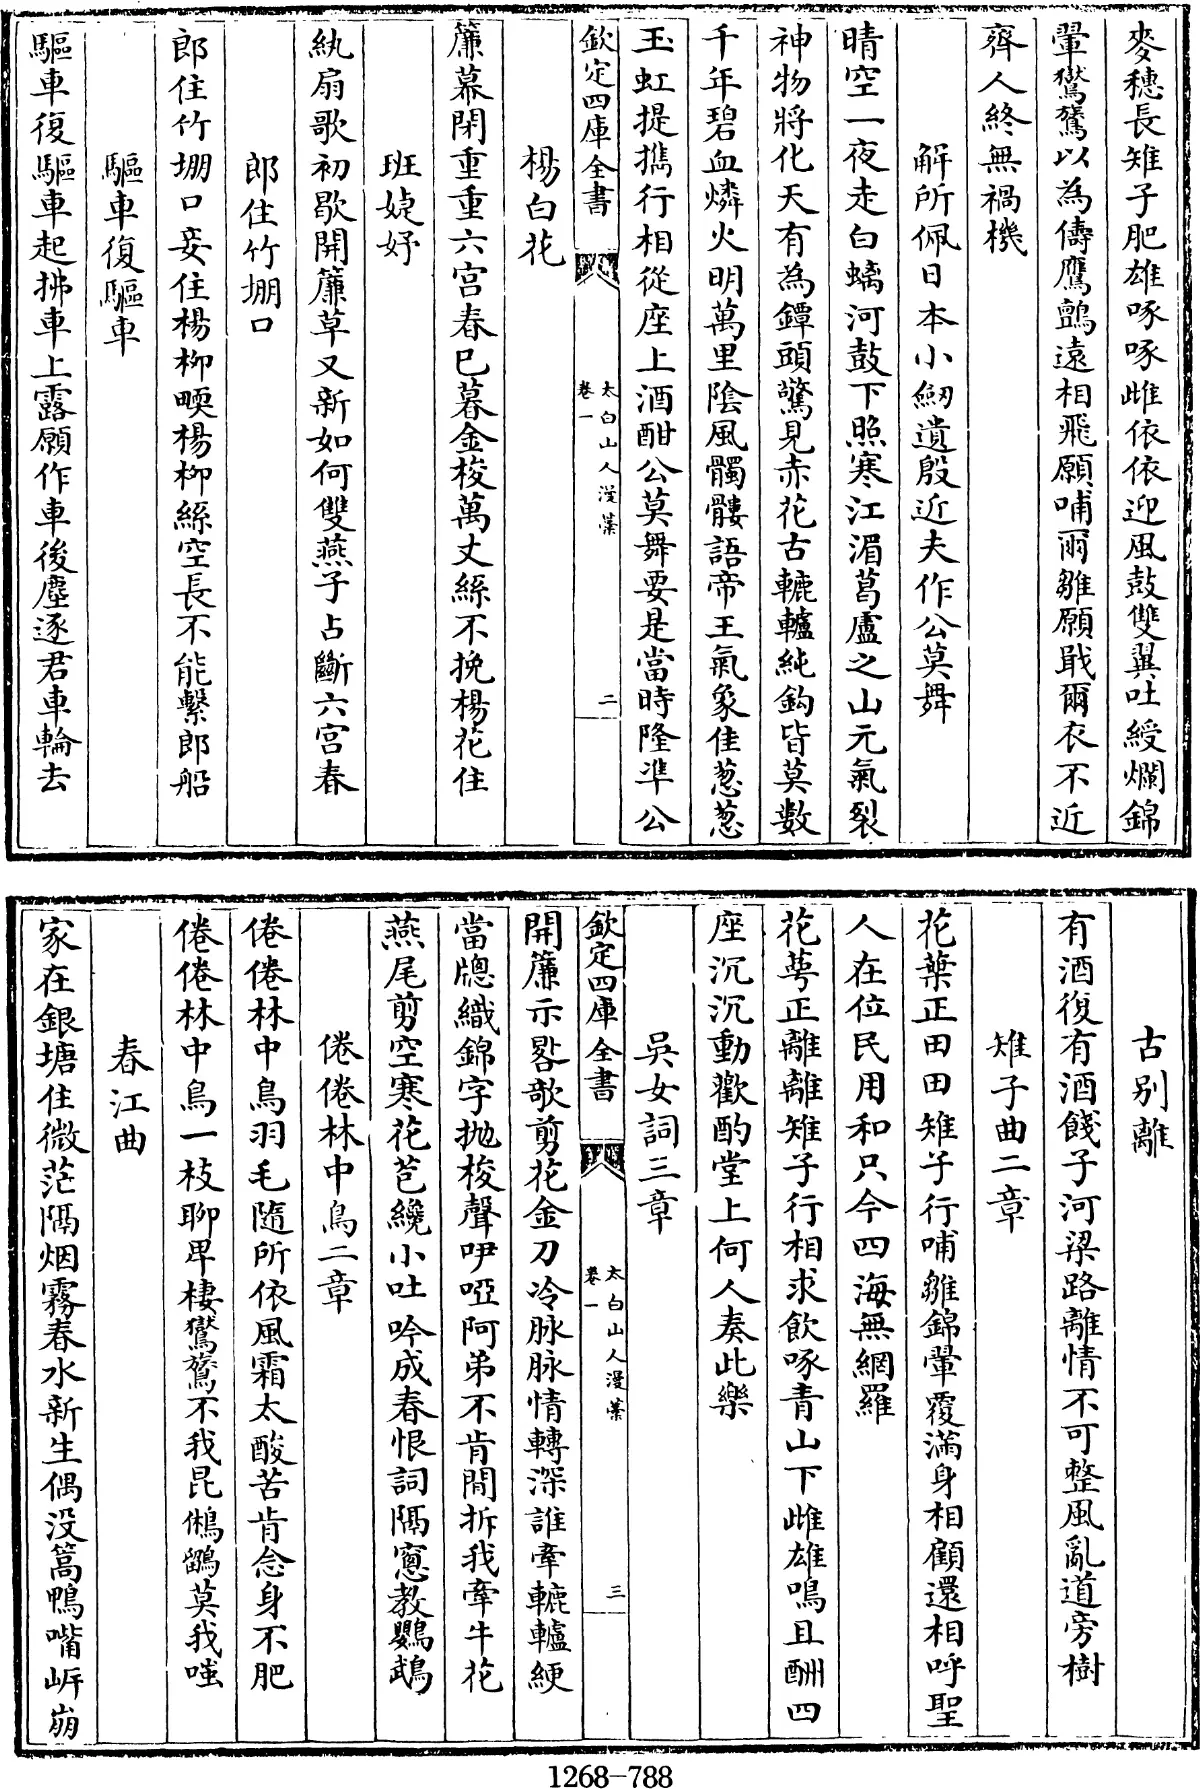 麥穗長雉子肥雄啄啄雌依依迎風鼓雙翼吐綬爛錦
翬鸑鷟以為儔鷹鸇遠相飛願哺爾雛願戢爾衣不近
齊人終無禍機
解所佩日本小劒遺殷近夫作公莫舞
晴空一夜走白螭河鼓下照寒江湄葛盧之山元氣裂
神物將化天有為鐔頭驚見赤花古轆轤純鈎皆莫數
千年碧血燐火明萬里陰風髑髏語帝王氣象佳蔥蔥
玉虹提攜行相從座上酒酣公莫舞要是當時隆凖公
欽定四庫全書
太白山人漫藁
卷一
二
楊白花
簾幕閉重重六宮春已暮金梭萬丈絲不挽楊花住
班婕妤
紈扇歌初歇開簾草又新如何雙燕子占斷六宮春
郎住竹堋口
郎住竹堋口妾住楊柳㬉楊柳絲空長不能繫郎船
驅車復驅車
驅車復驅車起拂車上露願作車後塵逐君車輪去
古别離
有酒復有酒餞子河梁路離情不可整風亂道旁樹
雉子曲二章
花葉正田田雉子行哺雛錦翬覆滿身相顧還相呼聖
人在位民用和只今四海無網羅
花萼正離離雉子行相求飲啄青山下雌雄鳴且酬四
座沉沉動歡酌堂上何人奏此樂
吳女詞三章
欽定四庫全書
太白山人漫藁
卷一
三
開簾示罯歌剪花金刀冷脉脉情轉深誰牽轆轤綆
當牕織錦字抛梭聲咿啞阿弟不肯閒拆我牽牛花
燕尾剪空寒花苞纔小吐吟成春恨詞隔窻教鸚鵡
倦倦林中鳥二章
倦倦林中鳥羽毛隨所依風霜太酸苦肯念身不肥
倦倦林中鳥一枝聊卑棲鸑鷟不我昆鵂鶹莫我嗤
春江曲
家在銀塘住微茫隔烟霧春水新生偶没篙鴨嘴岍崩
1268-788